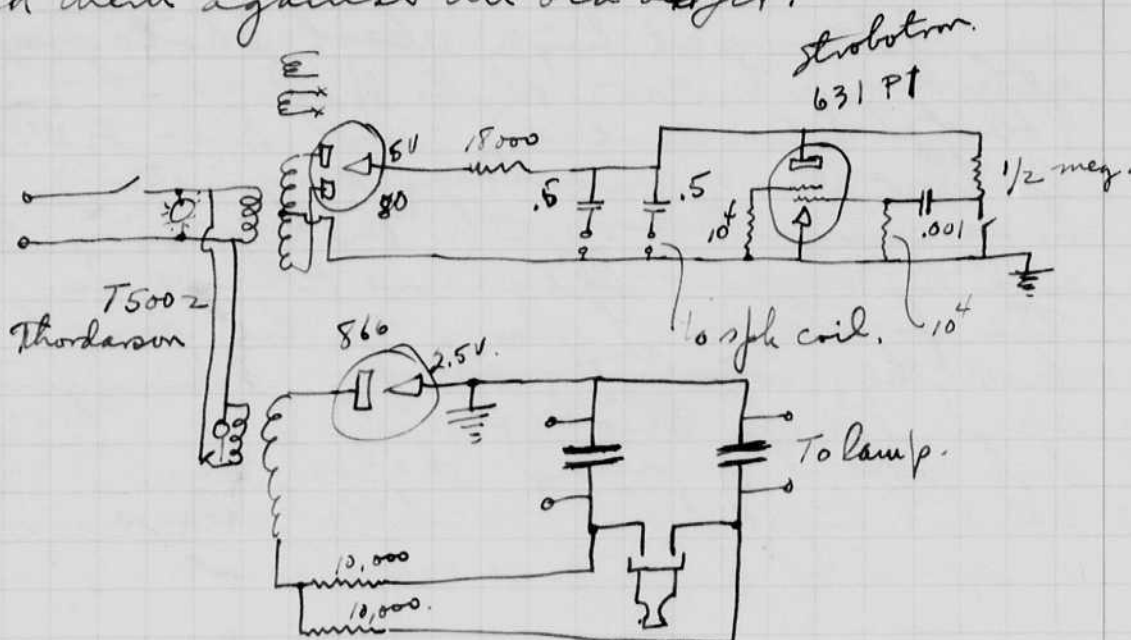 them against an old
Strobotron.
631 P1
5V
18000
80
.5
.5
10⁴
.001
1/2 meg.
T5002
Thordarson
to spk coil.
10⁴
866
2.5V.
To lamp.
10,000
10,000.